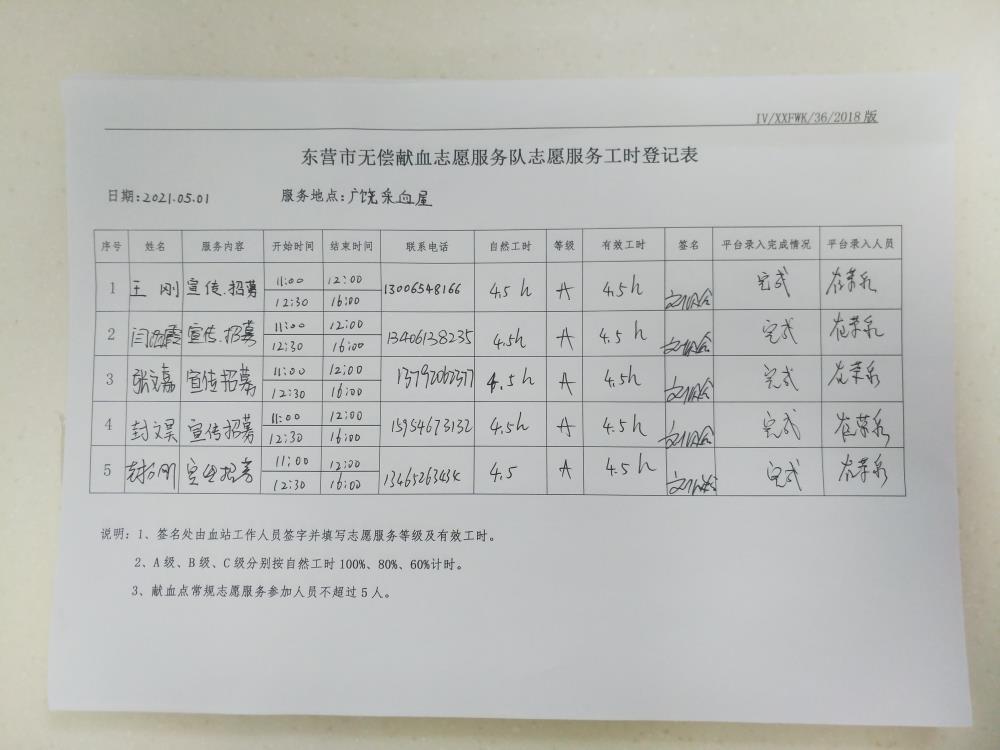 IV/XXFWK/36/2018版
东营市无偿献血志愿服务队志愿服务工时登记表
日期:2021.05.01 服务地点:广饶采血屋
序号 姓名 服务内容 开始时间 结束时间 联系电话 自然工时 等级 有效工时 签名 平台录入完成情况 平台录入人员
1 王刚 宣传.招募 11:00 12:00 13006548166 4.5h A 4.5h 完成
12:30 16:00
2 闫 霞 宣传.招募 11:00 12:00 13406138235 4.5h A 4.5h 完成
12:30 16:00
3 张文嘉 宣传招募 11:00 12:00 13792062377 4.5h A 4.5h 完成
12:30 16:00
4 封文昊 宣传招募 11:00 12:00 15954673132 4.5h A 4.5h 完成
12:30 16:00
5 刚 宣传招募 11:00 12:00 13465263434 4.5 A 4.5h 完成
12:30 16:00
说明:1、签名处由血站工作人员签字并填写志愿服务等级及有效工时。
2、A级、B级、C级分别按自然工时100%、80%、60%计时。
3、献血点常规志愿服务参加人员不超过5人。